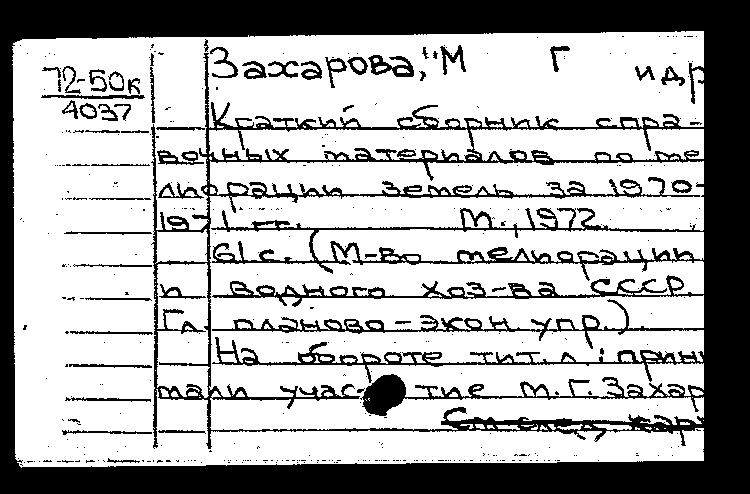 72-50к
4037
Захарова, М Г и др
Краткий сборник спра-
вочных материалов по ме
лиорации земель за 1970-
1971 гг. М., 1972.
61 с. (М-во мелиорации
и водного хоз-ва СССР.
Гл. планово-экон. упр.).
На обороте тит. л.: прини
мали участие М.Г. Захар
См след. кар